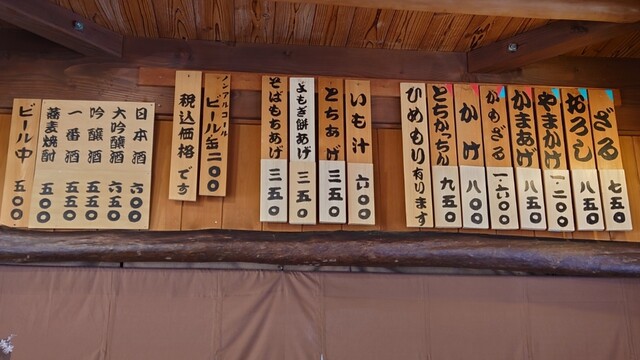 ざる 七五〇
おろし 八五〇
やまかけ 一・二〇〇
かまあげ 八五〇
かもざる 一・六〇〇
かけ 八〇〇
とちかっちん 九五〇
ひめもり有ります
いも汁 六〇〇
とちあげ 三五〇
よもぎ餅あげ 三五〇
そばもちあげ 三五〇
ノンアルコール
ビール缶 二〇〇
税込価格です
日本酒 六〇〇
大吟醸酒 六五〇
吟醸酒 五五〇
一番酒 五五〇
蕎麦焼酎 五〇〇
ビール中 五〇〇